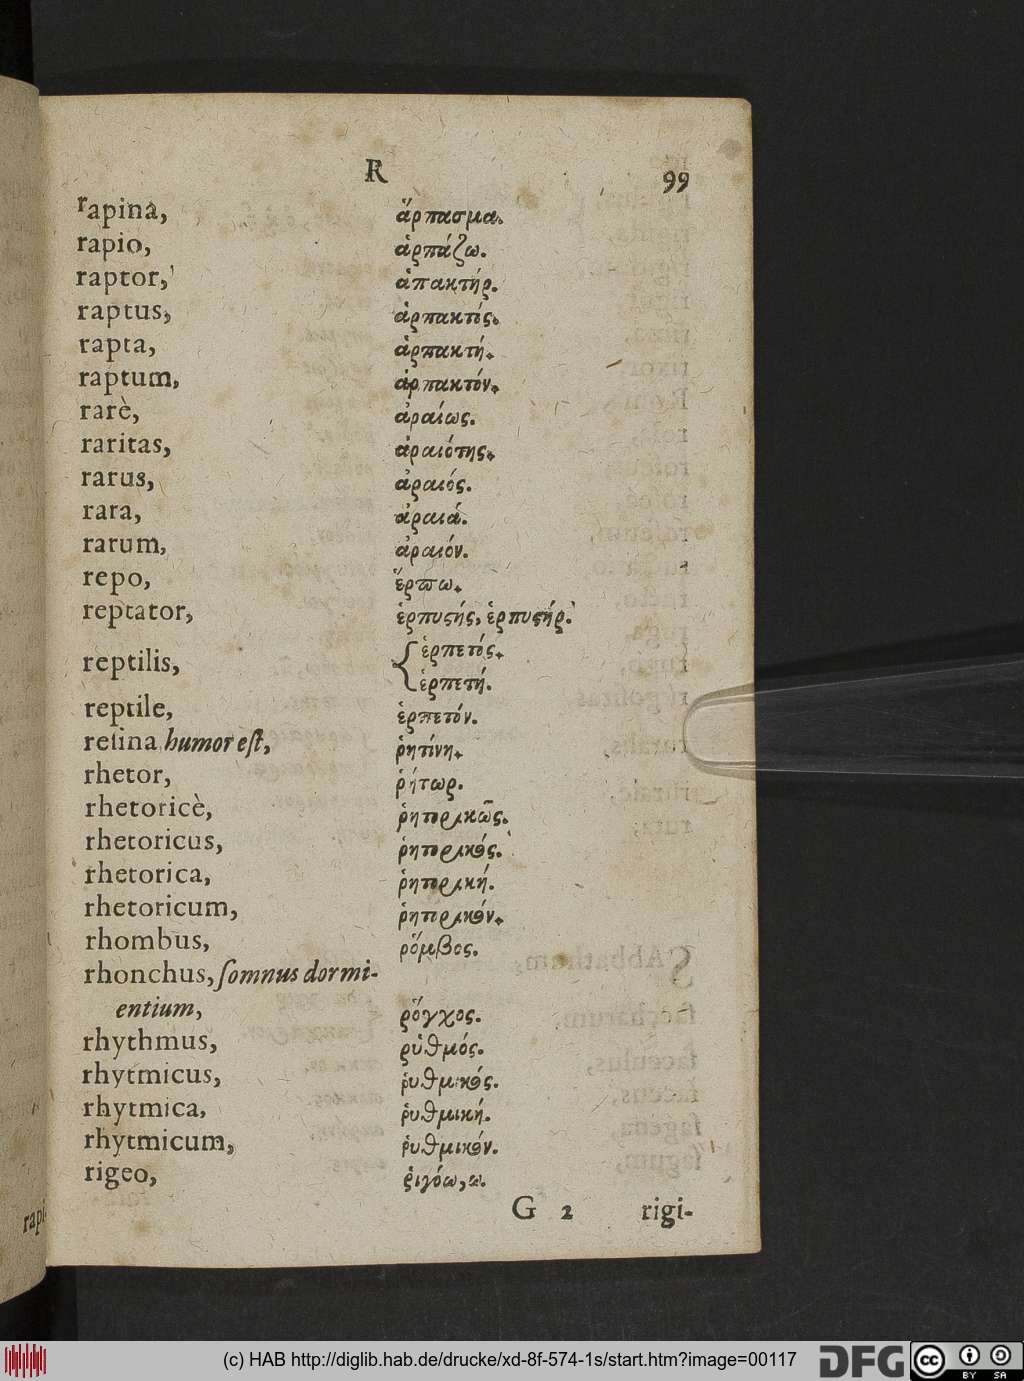 R 99
rapina, ἅρπασμα.
rapio, ἁρπάζω.
raptor, ἁπακτήρ.
raptus, ἁρπακτός.
rapta, ἁρπακτή.
raptum, ἁρπακτόν.
rarè, ἀραίως.
raritas, ἀραιότης.
rarus, ἀραιός.
rara, ἀραιά.
rarum, ἀραιόν.
repo, ἕρπω.
reptator, ἑρπυϛής, ἑρπυϛήρ.
reptilis, { ἑρπετός.
ἑρπετή.
reptile, ἑρπετόν.
resina humor eſt, ῥητίνη.
rhetor, ῥήτωρ.
rhetoricè, ῥητορικῶς.
rhetoricus, ῥητορικός.
rhetorica, ῥητορική.
rhetoricum, ῥητορικόν.
rhombus, ρόμβος.
rhonchus, ſomnus dormi-
entium, ρόγχος.
rhythmus, ρύθμός.
rhytmicus, ῥυθμικός.
rhytmica, ῥυθμική.
rhytmicum, ῥυθμικόν.
rigeo, ῥιγόω, ω.
G 2 rigi-
rapi-
(c) HAB http://diglib.hab.de/drucke/xd-8f-574-1s/start.htm?image=00117
DFG
cc BY SA